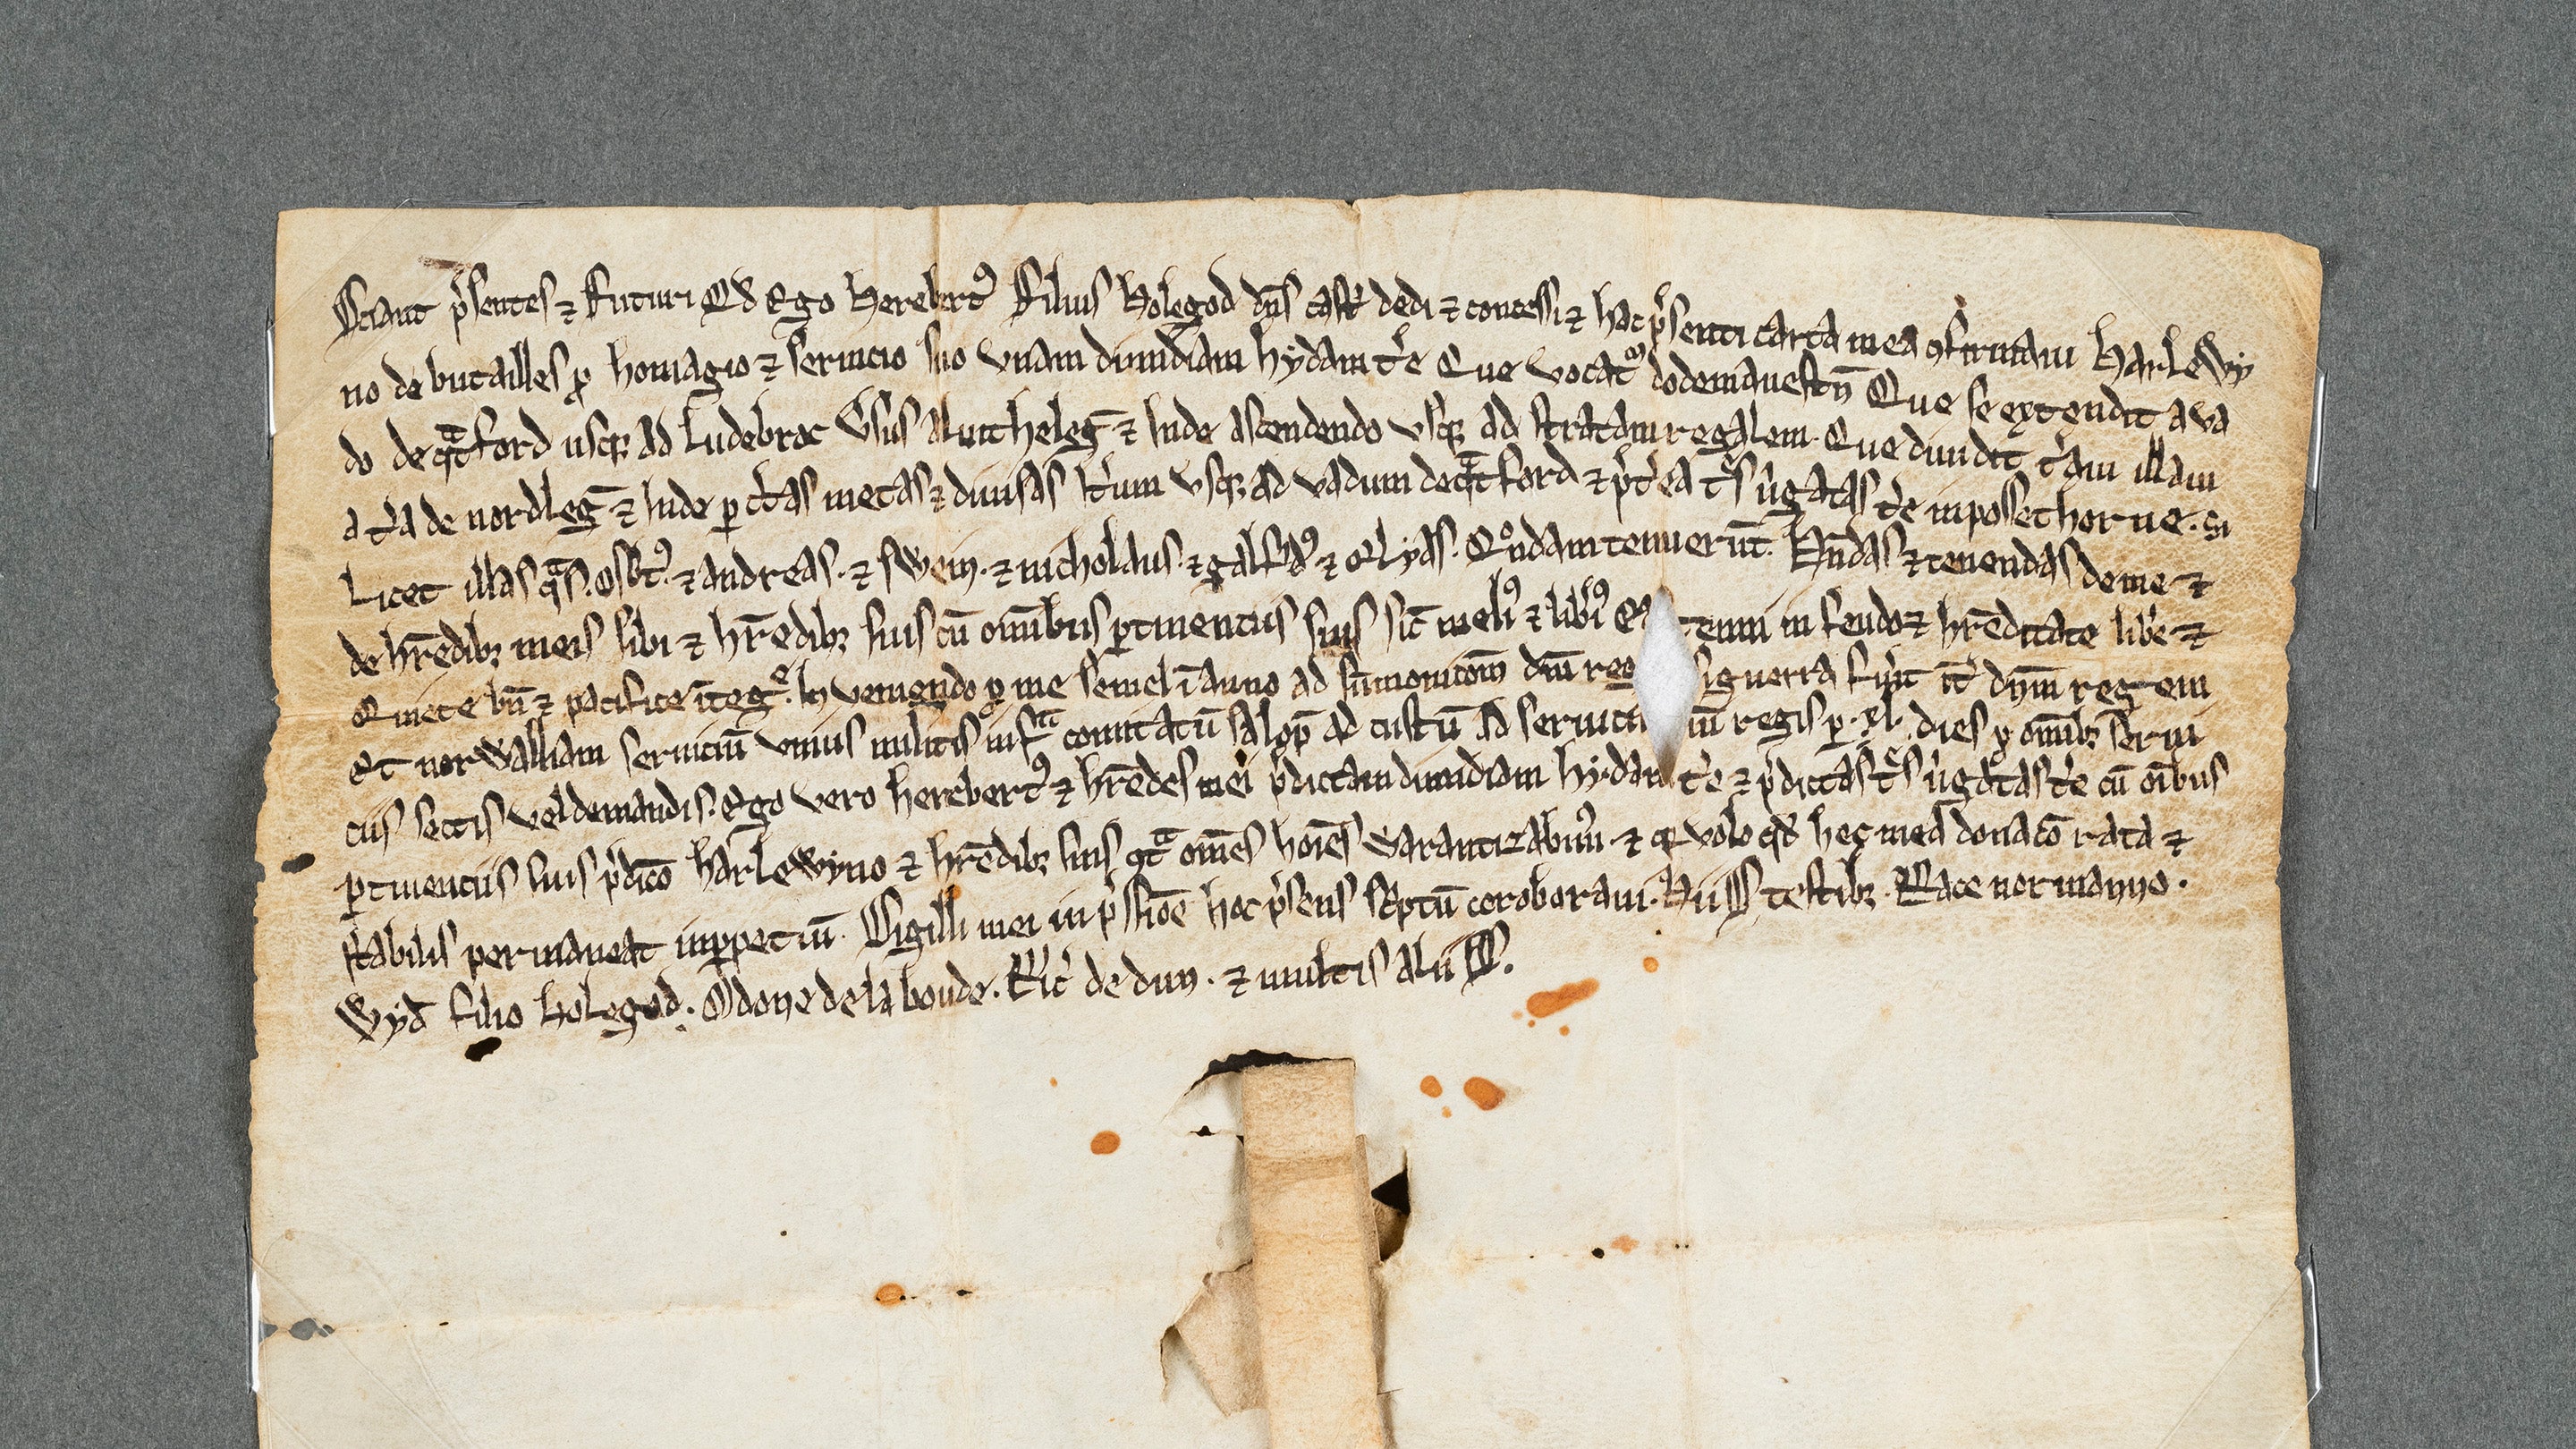 Sciant p̃sentes ⁊ Futuri Qd̃ Ego Herebert⁹ Filius Holegod dñs cast̃ dedi ⁊ concessi ⁊ hac p̃senti carta mea ꝯfirmaui Harlewy
no de butailles ꝓ homagio ⁊ seruicio suo vnam dimidiam hydam t̃re Que vocat᷑ dodemanestñ Que se extendit a va
do de qᵃtford usqꝫ ad Ludebroc ṽsus aluitheleg̃ ⁊ Inde ascendendo vsqꝫ ad stratam regalem. Que diuidit t̃ram illam
a t̃ra de nordleg̃ ⁊ Inde ꝑ c̃tas metas ⁊ diuisas It̃um vsqꝫ ad vadum de qᵃtford ⁊ p̃t̃ea t̃s ṽgatas t̃re in possethorne. Si
Licet illas qᵃs. osb̃t⁹. ⁊ andreas. ⁊ swein. ⁊ nicholaus. ⁊ galfrd⁹ ⁊ elyas. Qᵒndam tenuerũt. Hñdas ⁊ tenendas de me ⁊
de hr̃edibꝫ meis sibi ⁊ hr̃edibꝫ suis cũ omĩbus ꝑtinentiis suis sic̃ meli⁹ ⁊ lib̃i⁹ tenui in feudo ⁊ hr̃editate lib̃e ⁊
Quiete bñ ⁊ pacifice ĩtegᵉ. Inueniendo ꝓ me semel ĩ anno ad sũmonicõm dñi reg si guerra fũit int̃ dñm regem
Et norwalliam seruiciũ vnius militis infᵃ comitatũ salop̃ ad custũ ad seruiciu regis ꝑ .xl. dies ꝓ omĩbꝫ serui
ciis sectis vel demandis. Ego vero herebert⁹ ⁊ hr̃edes mei p̃dictam dimidiam hydam t̃re ⁊ p̃dictas t̃s ṽgatas t̃re cũ oĩbus
ꝑtinenciis suis p̃dic̃o harlewyno ⁊ hr̃edibꝫ suis ꝯtᵃ om̃es hoĩes Warantizabim⁹. ⁊ q̃ volo qd̃ hec mea donac̃o rata ⁊
stabilis permaneat inꝑpetuũ. Sigilli mei in p̃ssiõe hoc p̃sens sc̃ptũ coroboraui. Hiis testibꝫ. Race normanno.
wyd̃ filio holegod. Odone de la bonde. Ric̃ de dun. ⁊ multis aliis.